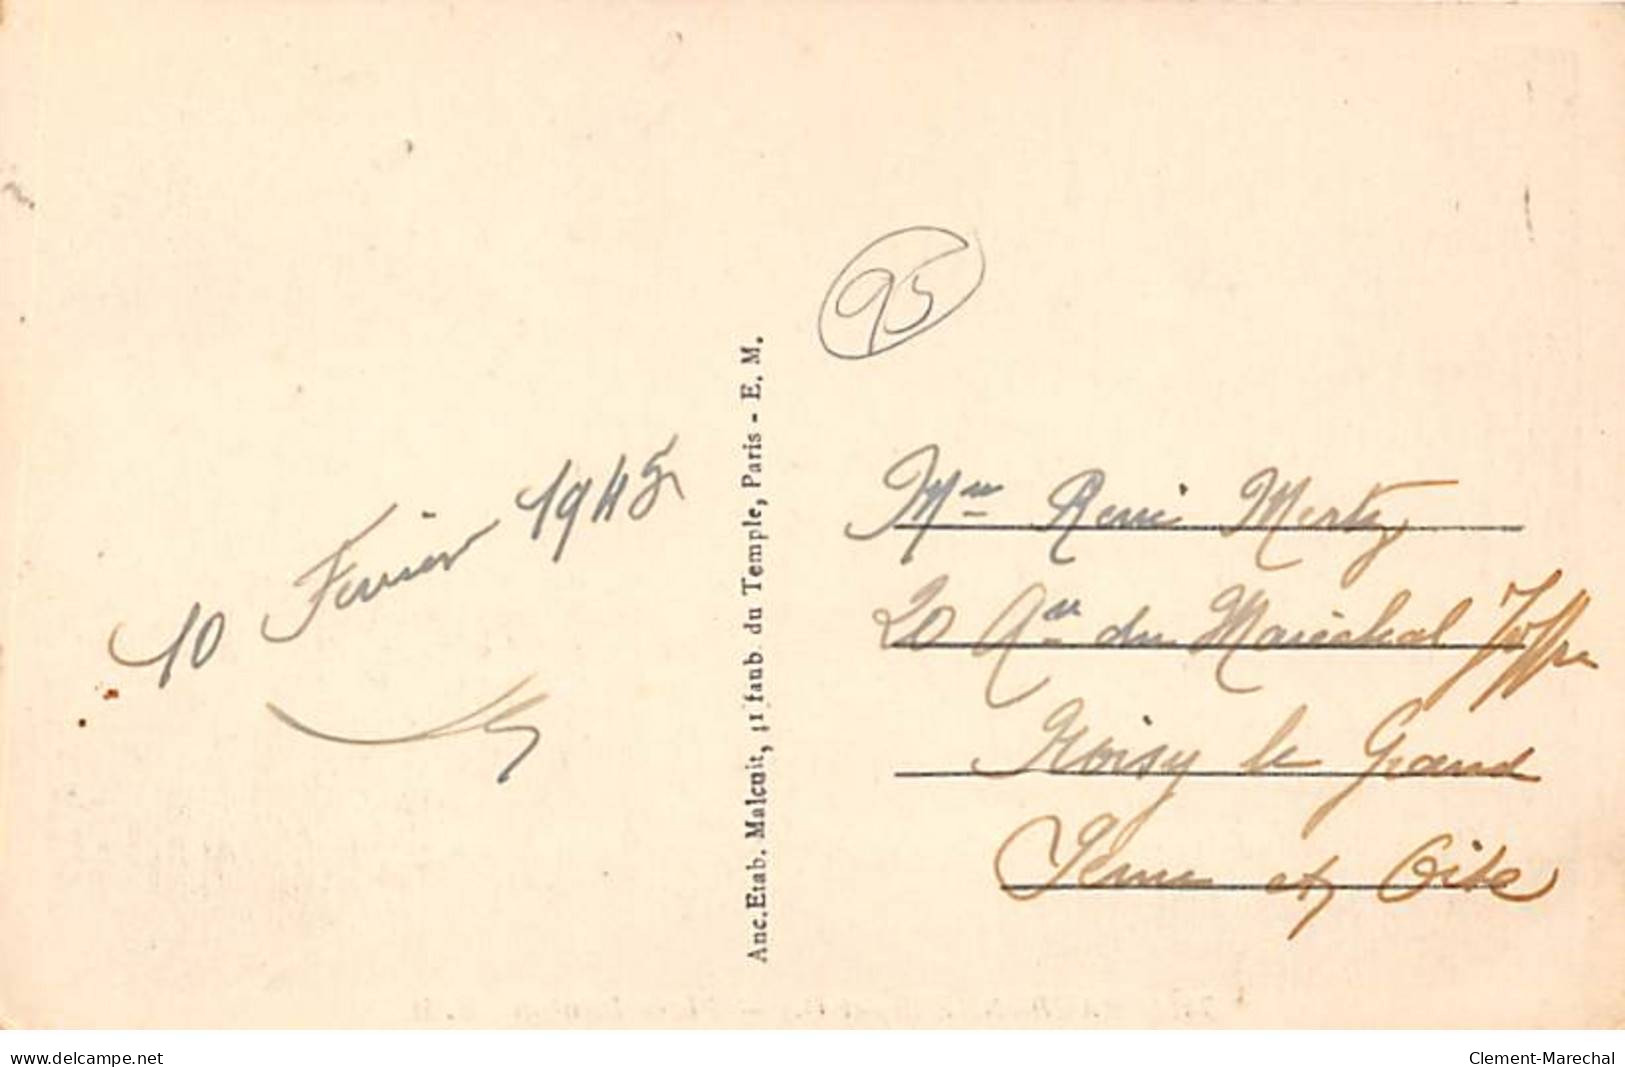 95
10 Février 1945
Anc. Etab. Malcuit, 41 faub. du Temple, Paris - E. M.
Mme René Mertz
20 Aue du Maréchal Joffre
Noisy le Grand
Seine et Oise
www.delcampe.net
Clement-Marechal